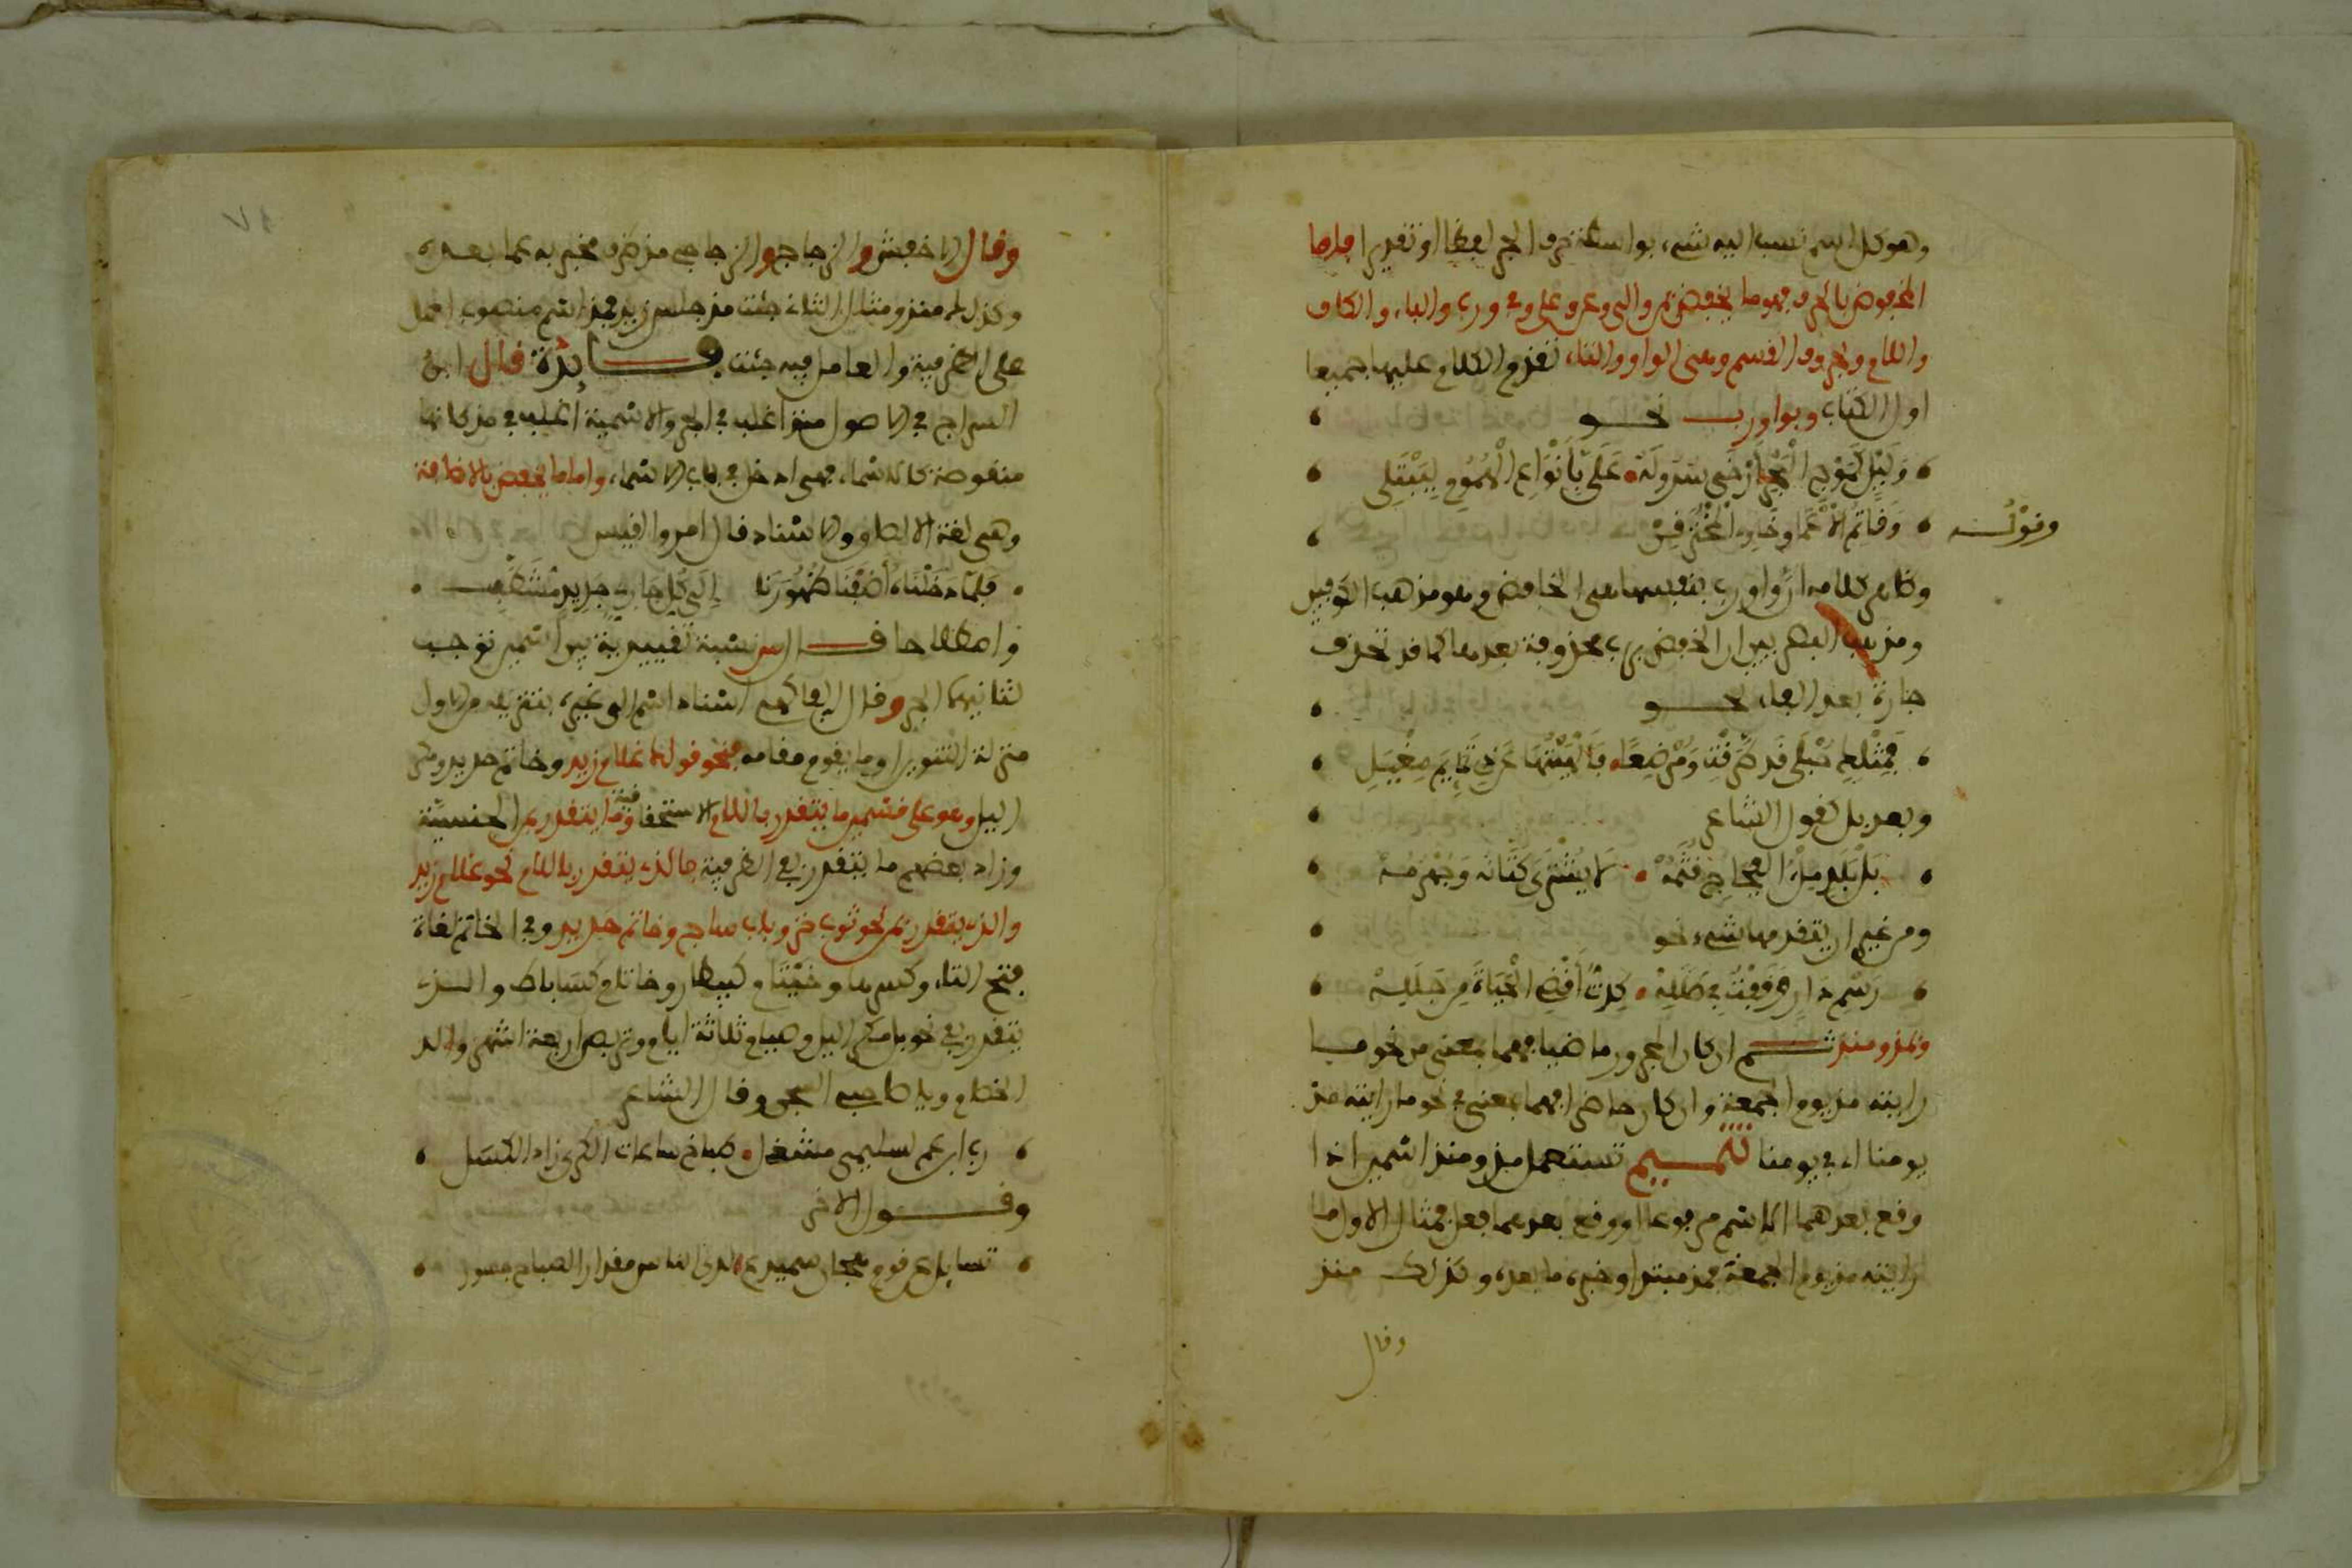 وهو كل اسم نسب اليه شيء بواسطة حرف الجر لفظا او تقديرا فاما
المخفوض بالحرف فهو ما يخفض بمن والى وعن وعلى وفي ورب والباء والكاف
واللام وحروف القسم وهي الواو والتاء تقدم الكلام عليها جميعا
اول الكتاب وبواو رب نحو
وَلَيْلٍ كَمَوْجِ الْبَحْرِ أَرْخَى سُدُولَهُ عَلَيَّ بِأَنْوَاعِ الْهُمُومِ لِيَبْتَلِي
وقوله وَقَاتِمِ الْأَعْمَاقِ خَاوِي الْمُخْتَرَقِنْ
وظاهر كلامه ان واو رب بنفسها هي الخافض وهو مذهب الكوفيين
ومذهب البصريين ان الخفض برب محذوفة بعدها كما قد تحذف
جارة بعد الفاء نحو
فَمِثْلِكِ حُبْلَى قَدْ طَرَقْتُ وَمُرْضِعًا فَأَلْهَيْتُهَا عَنْ ذِي تَمَائِمَ مُغْيَلِ
وبعد بل كقول الشاعر
بَلْ بَلَدٍ مِلْءُ الْفِجَاجِ قَتَمُهْ لَا يُشْتَرَى كَتَّانُهُ وَجَهْرَمُهْ
ومن غير ان يتقدمها شيء نحو
رَسْمِ دَارٍ وَقَفْتُ فِي طَلَلِهْ كِدْتُ أَقْضِي الْحَيَاةَ مِن جَلَلِهْ
وبمذ ومنذ ثم ان كان المجرور ماضيا فهما بمعنى من نحو ما
رايته مذ يوم الجمعة وان كان حاضرا فهما بمعنى في نحو ما رايته مذ
يومنا اي في يومنا تتميم تستعمل مذ ومنذ اسمين اذا
وقع بعدهما الاسم مرفوعا او وقع بعدهما فعل فمثال الاول ما
رايته مذ يوم الجمعة فمذ مبتدا وخبره ما بعده وكذلك منذ
وقال
وقال الاخفش والزجاج والزجاجي مذ ظرف مخبر به عما بعده
وكذلك منذ ومثال الثاني جئت مذ جلس زيد فمذ اسم منصوب المحل
على الظرفية والعامل فيه جئت فايدة قال ابن
السراج في الاصول منذ اغلب في الجر والاسمية اغلب في مذ لانها
منقوصة كالاسماء فهي ادخل في باب الاسماء واما ما يخفض بالاضافة
وهي لغة الالصاق والاسناد قال امرؤ القيس
فَلَمَّا دَخَلْنَاهُ أَضَفْنَا ظُهُورَنَا إِلَى كُلِّ حَارِيٍّ جَدِيدٍ مُشَطَّبِ
واصطلاحا نسبة تقييدية بين اسمين توجب
لثانيهما الجر وقال الفاكهي اسناد اسم الى غيره بتنزيله من الاول
منزلة التنوين او ما يقوم مقامه فنحو قولك غلام زيد وخاتم حديد ومكر
الليل وهو على قسمين ما يتقدر باللام الاستحقاقية وما يتقدر بمن الجنسية
وزاد بعضهم ما يتقدر بفي الظرفية فالذي يتقدر باللام نحو غلام زيد
والذي يتقدر بمن نحو ثوب خز وباب ساج وخاتم حديد وفي الخاتم لغات
بفتح التاء وكسرها وخيتام كبيطار وخاتام كساباط والذي
يتقدر بفي نحو بل مكر الليل وصيام ثلاثة ايام وتربص اربعة اشهر والد
الخصام ويا صاحبي السجن وقال الشاعر
رب ابن عم لسليمى مشمعل طباخ ساعات الكرى زاد الكسل
وقول الاخر
تسايل عن قوم هجان سميدع لدى الباس مغوار الصباح جسور